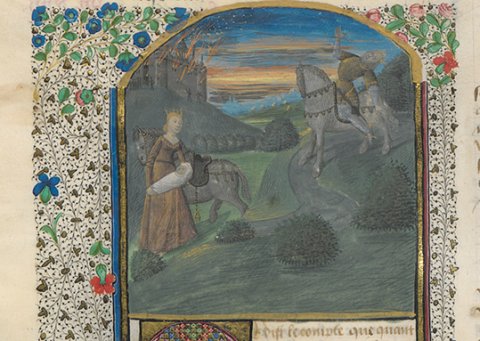 dist le compte que quant